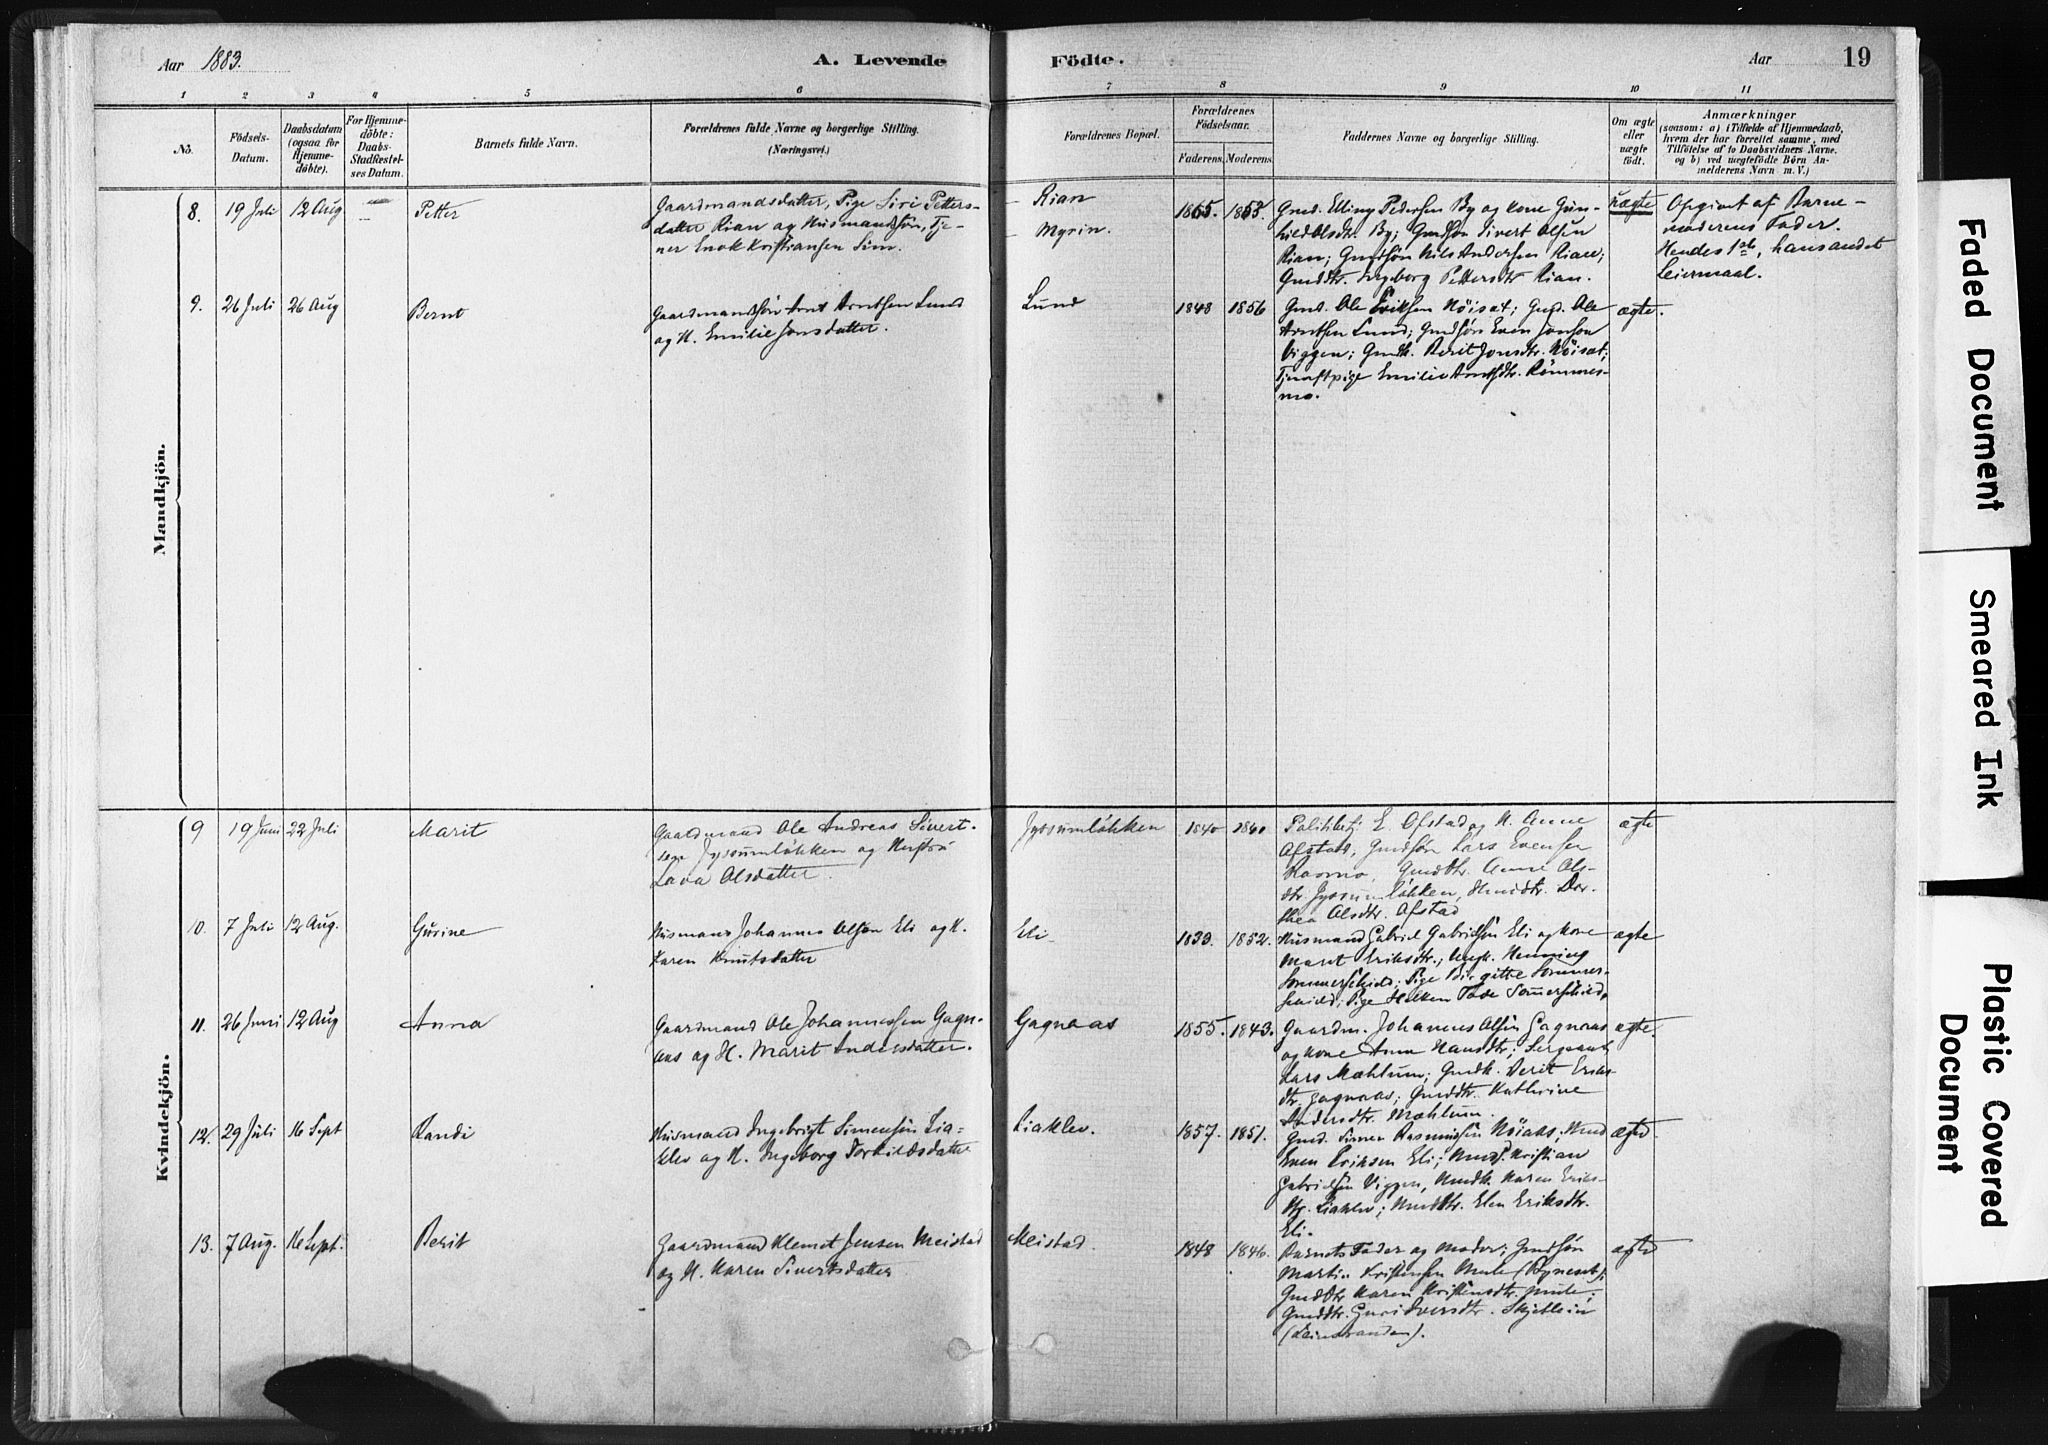 Aar 1883.
A. Levende
Födte.
Aar
19
1 2 3 4 5 6 7 8 9 10 11
No.
Födsels-
Datum.
Daabsdatum
(ogsaa for
Hjemme-
döbte).
For Hjemme-
döbte:
Daabs-
Stadfæstel-
ses Datum.
Barnets fulde Navn.
Forældrenes fulde Navne og borgerlige Stilling.
(Næringsvei.)
Forældrenes Bopæl.
Forældrenes
Födselsaar.
Faderens. Moderens.
Faddernes Navne og borgerlige Stilling.
Om ægte
eller
uægte
födt.
Anmærkninger
(saasom: a) i Tilfælde af Hjemmedaab,
hvem der har forrettet samme, med
Tilföielse af to Daabsvidners Navne,
og b) ved uægtefödte Börn An-
melderens Navn m. V.)
Mandkjön.
8. 19 Juli 12 Aug
Petter
Gaardmandsdatter, Pige Siri Petters-
datter Rian og Husmandssön, Tje-
ner Enok Kristiansen Sim.
Rian
Myrin.
1865. 1858.
Gmd. Elling Pedersen By og Kone Gun-
hild Olsdtr. By; Gmdsön Sivert Olsen
Rian; Gmdsön Nils Andersen Rian;
Gmddtr. Ingeborg Pettersdtr Rian.
uægte
Opgivet af Barne-
moderens Fader.
Hendes 1ste, hans andet
Leiermaal.
9. 26 Juli 26 Aug
Bernt
Gaardmandssön Arnt Arntsen Lund
og H. Emilie Jonsdatter.
Lund
1848 1856
Gmd. Ole Eriksen Nöisat; Gmd. Ole
Arntsen Lund; Gmdsön Even Jonsen
Viggen; Gmdk. Berit Jonsdtr. Nöisat;
Tjenestpige Emilie Arntsdtr. Römmes-
mo.
ægte.
Kvindekjön.
9 19 Juni 22 Juli
Marit
Gaardmand Ole Andreas Sivert-
sen Jyssumlökken og Hustru
Lava Olsdatter.
Jyssumlökken
1840 1840
Politibetj. E. Ofstad og H. Anne
Ofstad, Gmdsön Lars Evensen
Gmddtr. Anne Ols-
dtr. Jyssumlökken, Dor-
thea Olsdtr. Ofstad
ægte
10. 7 Juli 12 Aug.
Gurine
Husmand Johannes Olsen Eli og H.
Karen Knutsdatter
Eli
1839. 1852.
Husmand Gabriel Gabrielsön Eli og Kone
Marit Eriksdtr.; Ungk. Henning
Sommerschield; Pige Birgitte Sommer-
schield; Pige Helken Tode Sommerschield.
ægte
11. 26 Juni 12 Aug
Anna
Gaardmand Ole Johannessen Gagn-
aas og H. Marit Andersdatter.
Gagnaas
1855. 1843.
Gaardm. Johannes Olsön Gagnaas
og Kone Anne Hansdtr; Sergeant
Lars Mæhlum; Gmdk. Berit Eriks-
dtr. Gagnaas; Gmddtr. Kathrine
Andersdtr. Mæhlum.
ægte.
12. 29 Juli 16 Sept
Randi
Husmand Ingebrigt Simensön Lia-
klev og H. Ingeborg Torkildsdatter
Liaklev.
1857. 1851.
Gmd. Simen Rasmussön Nöisat, Hmd
Even Eriksen Eli; Kristian
Gabrielsön Viggen, Hmdk. Karen Eriks-
dtr. Liaklev; Hmddtr. Elen Eriksdtr.
Eli.
ægte.
13. 7 Aug. 16 Sept.
Berit
Gaardmand Klemet Jensen Meistad
og H. Karen Sivertsdatter
Meistad.
1848 1846.
Barnets Fader og Moder; Gmdsön
Martin Kristensen Mule (Byneset);
Gmddtr Karen Kristensdtr. Mule;
Gmddtr. Guri Iversdtr. Skjetlein
(Leinstranden).
ægte
Faded Document
Smeared Ink
Plastic Covered
Document